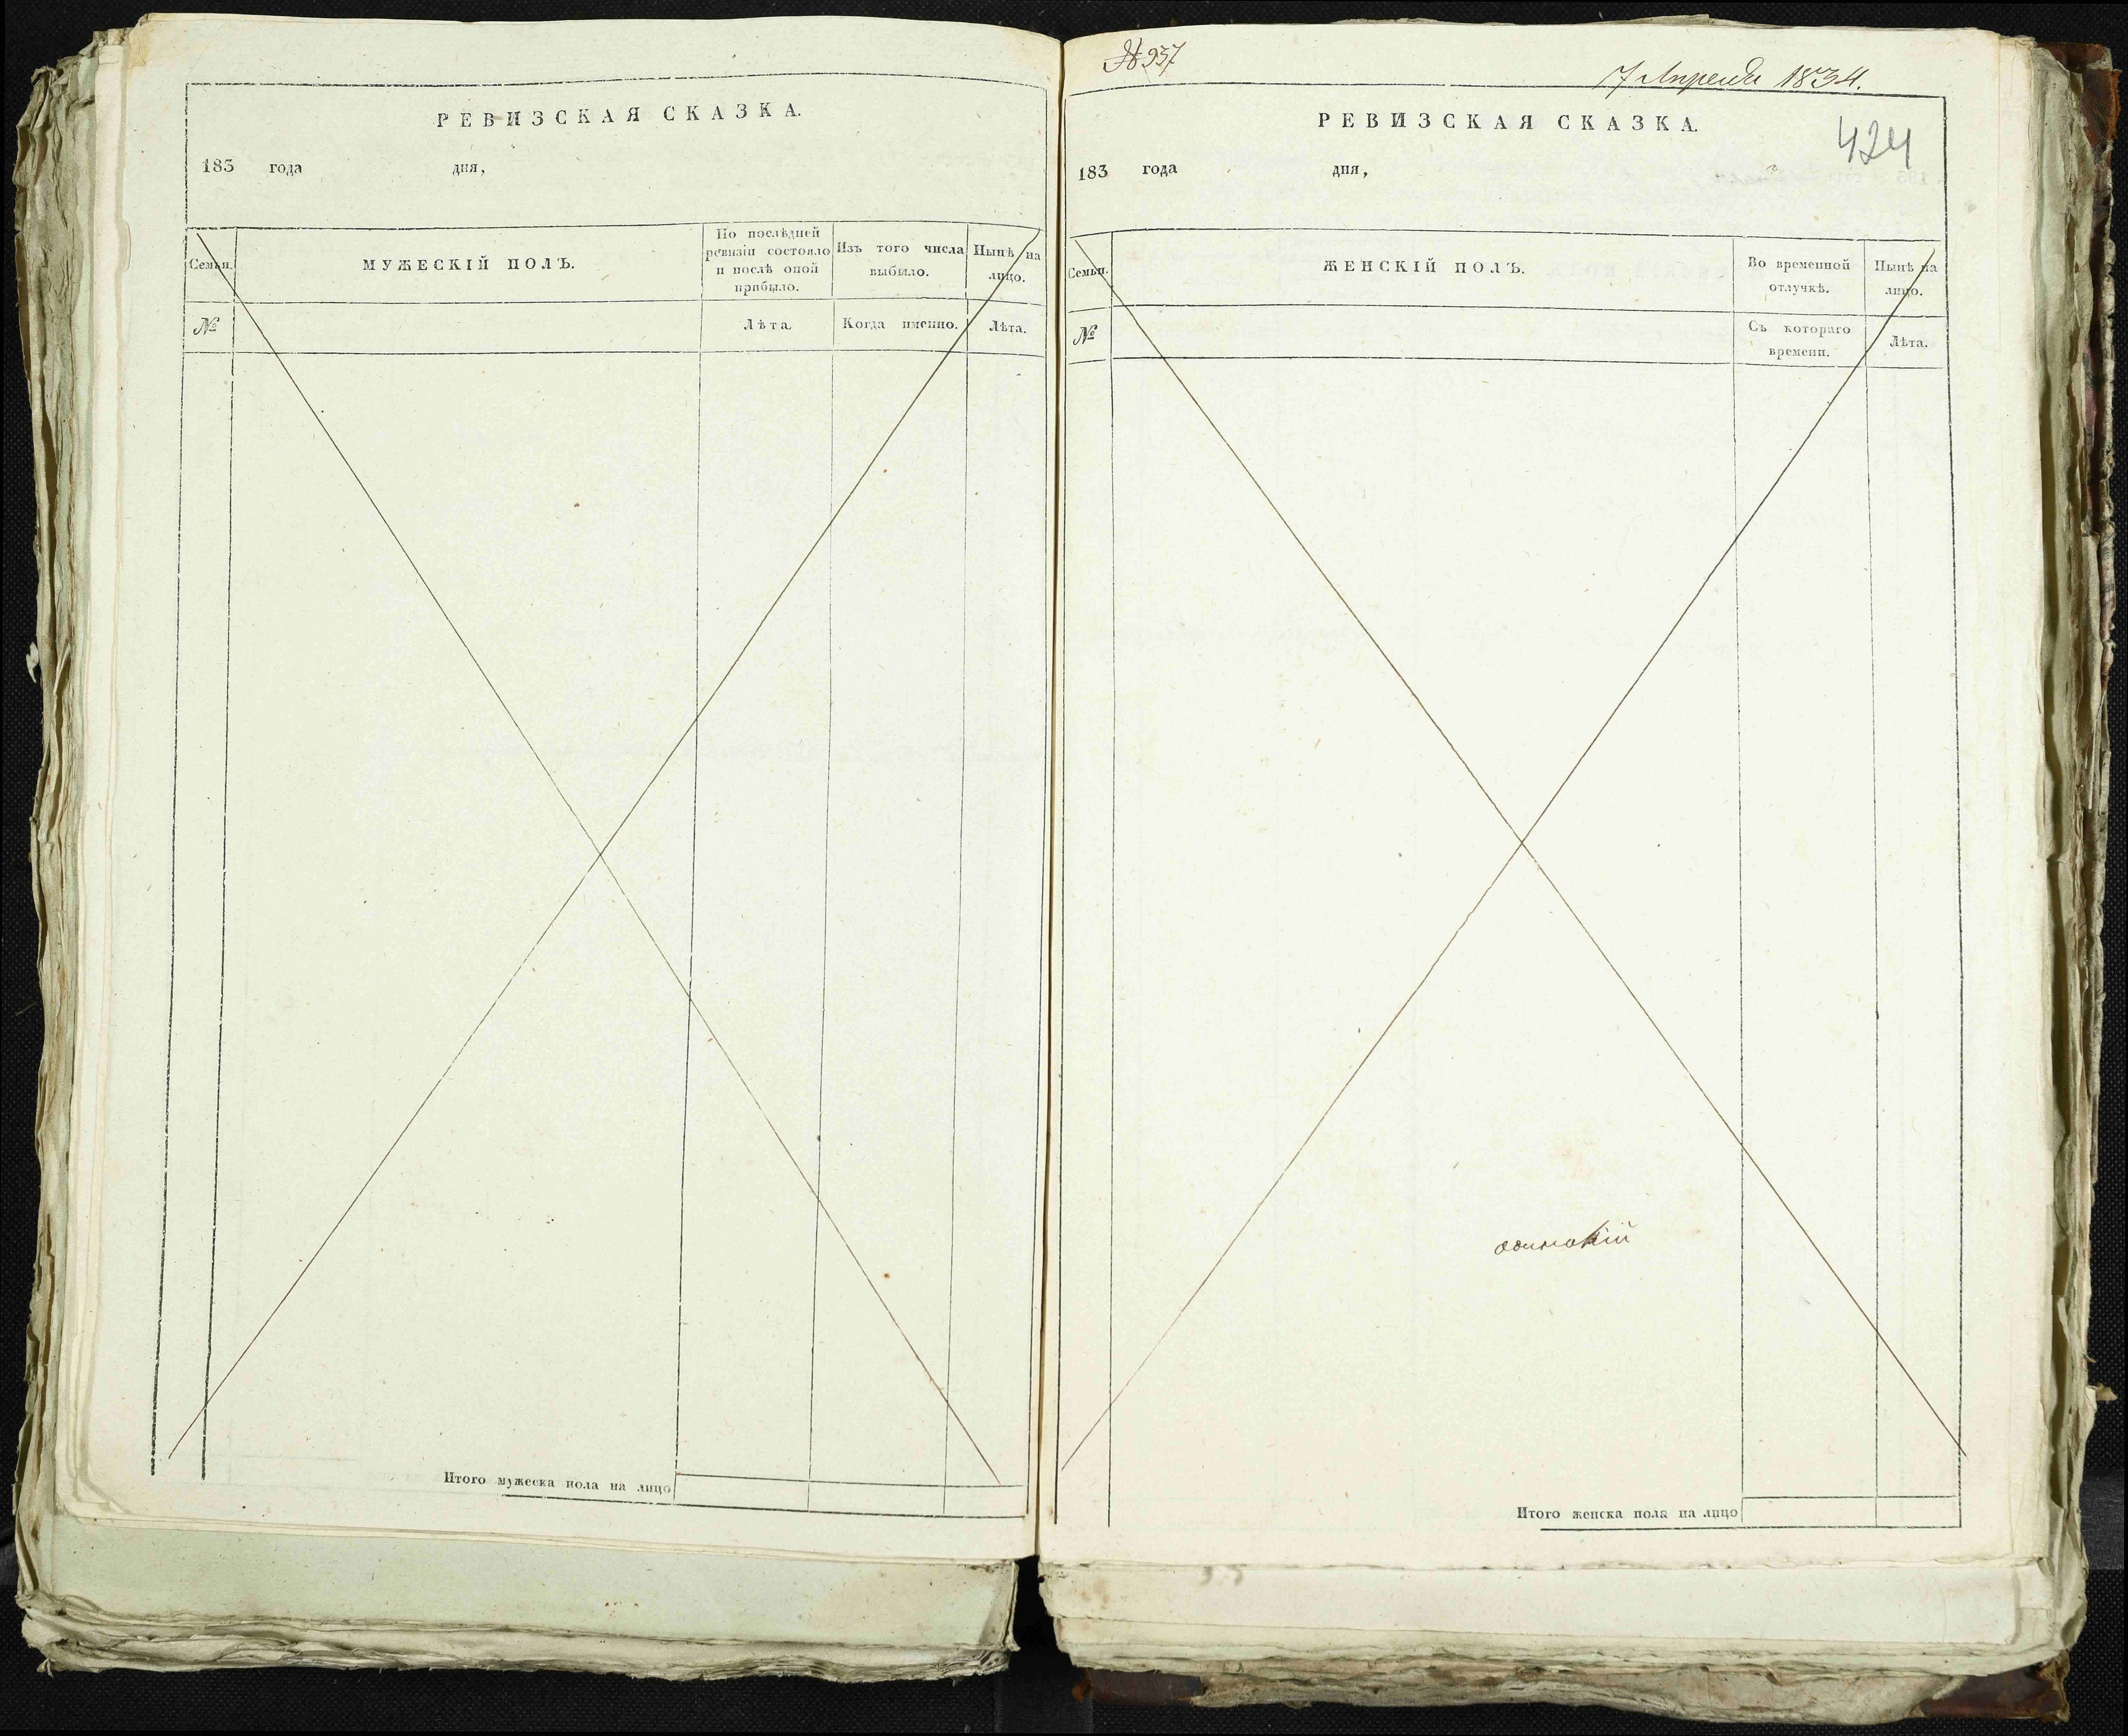 РЕВИЗСКАЯ СКАЗКА.
183 года дня,
Семьи.
МУЖЕСКІЙ ПОЛЪ.
По послѣдней ревизіи состояло и послѣ оной прибыло.
Изъ того числа выбыло.
Нынѣ на лицо.
№
Лѣта.
Когда именно.
Лѣта.
Итого мужеска пола на лицо
№ 937
7 Апреля 1834.
РЕВИЗСКАЯ СКАЗКА.
424
183 года дня,
Семьи.
ЖЕНСКІЙ ПОЛЪ.
Во временной отлучкѣ.
Нынѣ на лицо.
№
Съ котораго времени.
Лѣта.
одинокій
Итого женска пола на лицо